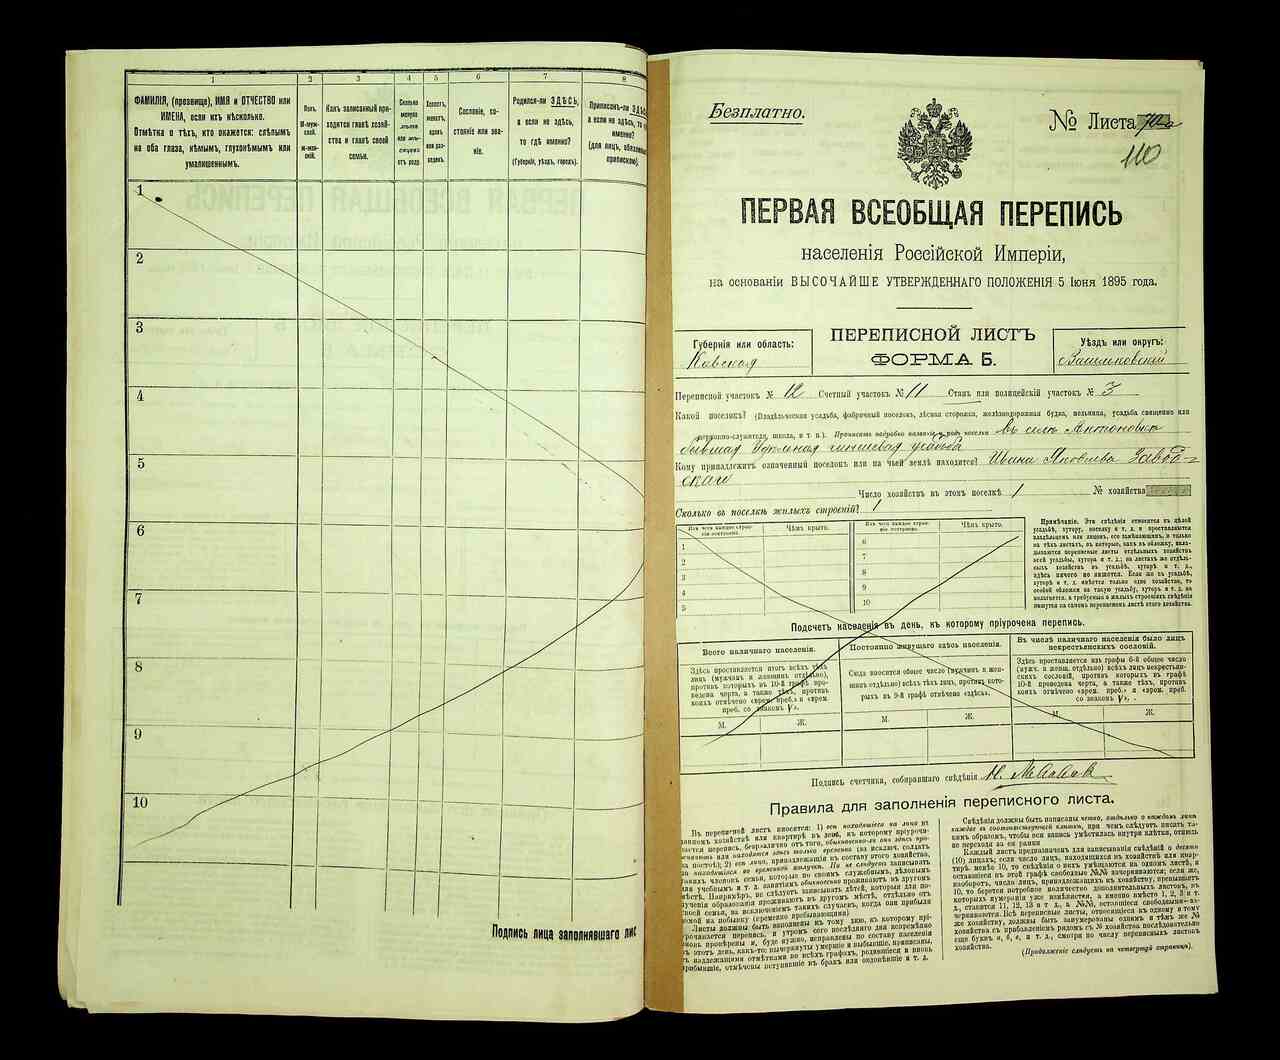 1 2 3 4 5 6 7 8
ФАМИЛІЯ, (прозвище), ИМЯ и ОТЧЕСТВО или
ИМЕНА, если ихъ нѣсколько.
Отмѣтка о тѣхъ, кто окажется: слѣпымъ
на оба глаза, нѣмымъ, глухонѣмымъ или
умалишеннымъ.
Полъ.
М-муж-
ской.
Ж-жен-
скій.
Какъ записанный при-
ходится главѣ хозяй-
ства и главѣ своей
семьи.
Сколько
минуло
лѣтъ
или мѣ-
сяцевъ
отъ роду.
Холостъ,
женатъ,
вдовъ
или раз-
веденъ.
Сословіе, со-
стояніе или зва-
ніе.
Родился-ли ЗДѢСЬ,
а если не здѣсь,
то гдѣ именно?
(Губернія, уѣздъ, городъ).
Приписанъ-ли ЗДѢСЬ
а если не здѣсь, то
именно?
(для лицъ, обязанныхъ
припискою).
1
2
3
4
5
6
7
8
9
10
Подпись лица заполнявшаго лис
Безплатно.
№ Листа 70а
110
ПЕРВАЯ ВСЕОБЩАЯ ПЕРЕПИСЬ
населенія Россійской Имперіи,
на основаніи ВЫСОЧАЙШЕ УТВЕРЖДЕННАГО ПОЛОЖЕНІЯ 5 Іюня 1895 года.
Губернія или область:
ПЕРЕПИСНОЙ ЛИСТЪ
ФОРМА Б.
Уѣздъ или округъ:
Кіевская
Васильковскій
Переписной участокъ № 12 Счетный участокъ № 11 Станъ или полицейскій участокъ № 3
Какой поселокъ? (Владѣльческая усадьба, фабричный поселокъ, лѣсная сторожка, желѣзнодорожная будка, мельница, усадьба священно или
церковно-служителя, школа, и т. п.). Прописать подробно названіе и родъ поселка въ селѣ Антоновкѣ
бывшая чиншевая усадьба
Кому принадлежитъ означенный поселокъ или на чьей землѣ находится? Ивана Яковлева Завод-
скаго
Число хозяйствъ въ этомъ поселкѣ 1 № хозяйства
Сколько въ поселкѣ жилыхъ строеній? 1
Изъ чего каждое строе-
ніе построено.
Чѣмъ крыто.
Изъ чего каждое строе-
ніе построено.
Чѣмъ крыто.
1
2
3
4
5
6
7
8
9
10
Примѣчаніе. Эти свѣдѣнія относятся къ цѣлой
усадьбѣ, хутору, поселку и т. д. и проставляются
владѣльцемъ или лицомъ, его замѣняющимъ, и только
на тѣхъ листахъ, въ которые, какъ въ обложку, вкла-
дываются переписные листы отдѣльныхъ хозяйствъ
всей усадьбы, хутора и т. д.; на листахъ же отдѣль-
ныхъ хозяйствъ въ усадьбѣ, хуторѣ и т. д.,
здѣсь ничего не пишется. Если же въ усадьбѣ,
хуторѣ и т. д. имѣется только одно хозяйство, то
особой обложки на такую усадьбу, хуторъ и т. д. не
полагается, а требуемыя о жилыхъ строеніяхъ свѣдѣнія
пишутся на самомъ переписномъ листѣ этого хозяйства.
Подсчетъ населенія въ день, къ которому пріурочена перепись.
Всего наличнаго населенія.
Здѣсь проставляется итогъ всѣхъ тѣхъ
лицъ (мужчинъ и женщинъ отдѣльно),
противъ которыхъ въ 10-й графѣ про-
ведена черта, а также тѣхъ, противъ
коихъ отмѣчено «врем. преб.» и «врем.
преб. со знакомъ V».
М. Ж.
Постоянно живущаго здѣсь населенія.
Сюда вносится общее число (мужчинъ и жен-
щинъ отдѣльно) всѣхъ тѣхъ лицъ, противъ кото-
рыхъ въ 9-й графѣ отмѣчено «здѣсь».
М. Ж.
Въ числѣ наличнаго населенія было лицъ
некрестьянскихъ сословій.
Здѣсь проставляется изъ графы 6-й общее число
(мужч. и женщ. отдѣльно) всѣхъ лицъ некрестьян-
скихъ сословій, противъ которыхъ въ графѣ
10-й проведена черта, а также тѣхъ, противъ
коихъ отмѣчено «врем. преб.» и «врем. преб.
со знакомъ V».
М. Ж.
Подпись счетчика, собиравшаго свѣдѣнія
Правила для заполненія переписного листа.
Въ переписной листъ вносятся: 1) всѣ находящіяся на лицо въ
данномъ хозяйствѣ или квартирѣ въ день, къ которому пріурочи-
вается перепись, безразлично отъ того, обыкновенно-ли онѣ здѣсь про-
живаютъ или находятся здѣсь только временно (за исключ. солдатъ
на постоѣ); 2) всѣ лица, принадлежащія къ составу этого хозяйства,
но находящіяся во временной отлучкѣ. Но не слѣдуетъ записывать
такихъ членовъ семьи, которые по своимъ служебнымъ, дѣловымъ
или учебнымъ и т. д. занятіямъ обыкновенно проживаютъ въ другомъ
мѣстѣ. Напримѣръ, не слѣдуетъ записывать дѣтей, которыя для по-
лученія образованія проживаютъ въ другомъ мѣстѣ, отдѣльно отъ
своей семьи, за исключеніемъ такихъ случаевъ, когда они прибыли
домой на побывку (временное пребываніе).
Листы должны быть заполнены къ тому дню, къ которому прі-
урочивается перепись, и утромъ сего послѣдняго дня немедленно
вновь провѣрены и, буде нужно, исправлены по составу населенія
въ этотъ день, какъ-то: вычеркнуты умершіе и выбывшіе, приписаны,
съ надлежащими отмѣтками во всѣхъ графахъ, родившіеся и вновь
прибывшіе, отмѣчены вступившіе въ бракъ или овдовѣвшіе и т. д.
Свѣдѣнія должны быть написаны четко, отдѣльно о каждомъ лицѣ
каждое въ соотвѣтствующей клѣткѣ, при чемъ слѣдуетъ писать та-
кимъ образомъ, чтобы вся запись умѣстилась внутри клѣтки, отнюдь
не переходя за ея рамки
Каждый листъ предназначенъ для записыванія свѣдѣній о десяти
(10) лицахъ; если число лицъ, находящихся въ хозяйствѣ или квар-
тирѣ, менѣе 10, то свѣдѣнія о нихъ умѣщаются на одномъ листѣ, и
оставшіеся въ этой графѣ свободные №№ зачеркиваются; если же,
наоборотъ, число лицъ, принадлежащихъ къ хозяйству, превышаетъ
10, то берется потребное количество дополнительныхъ листовъ, въ
которыхъ нумерація уже измѣняется, а именно вмѣсто 1, 2, 3 и т.
д., ставится 11, 12, 13 и т. д., а №№, оставшіеся свободными—за-
черкиваются. Всѣ переписные листы, относящіеся къ одному и тому
же хозяйству, должны быть занумерованы однимъ и тѣмъ же №
хозяйства съ прибавленіемъ рядомъ съ № хозяйства послѣдовательно
еще буквъ а, б, в, и т. д., смотря по числу переписныхъ листовъ
хозяйства.
(Продолженіе слѣдуетъ на четвертой страницѣ).